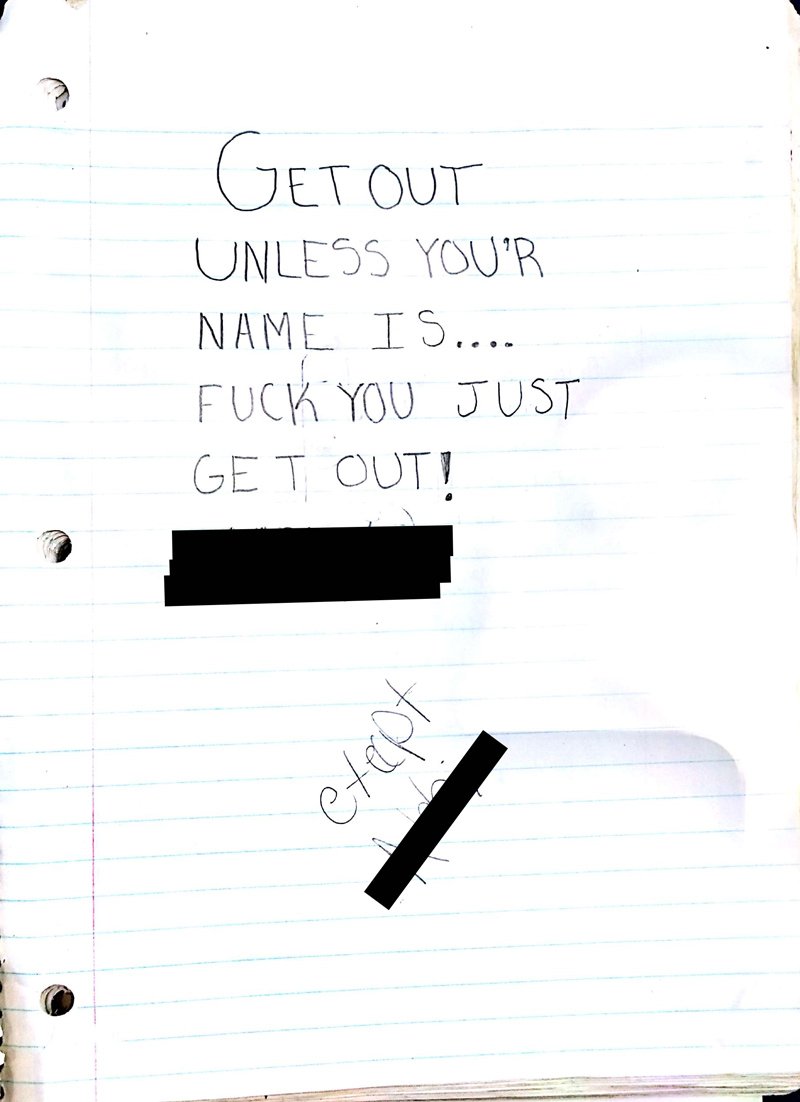 GET OUT
UNLESS YOU'R
NAME IS....
FUCK YOU JUST
GET OUT!